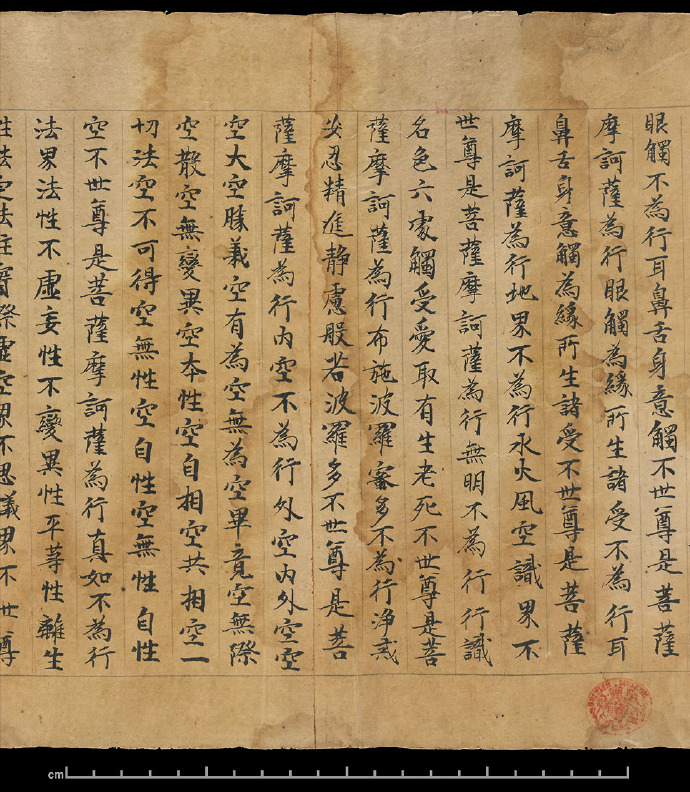 眼觸不為行耳鼻舌身意觸不世尊是菩薩
摩訶薩為行眼觸為緣所生諸受不為行耳
鼻舌身意觸為緣所生諸受不世尊是菩薩
摩訶薩為行地界不為行水火風空識界不
世尊是菩薩摩訶薩為行無明不為行行識
名色六處觸受愛取有生老死不世尊是菩
薩摩訶薩為行布施波羅蜜多不為行淨戒
安忍精進靜慮般若波羅多不世尊是菩
薩摩訶薩為行內空不為行外空內外空空
空大空勝義空有為空無為空畢竟空無際
空散空無變異空本性空自相空共相空一
切法空不可得空無性空自性空無性自性
空不世尊是菩薩摩訶薩為行真如不為行
法界法性不虛妄性不變異性平等性離生
性法定法住實際虛空界不思議界不世尊
cm